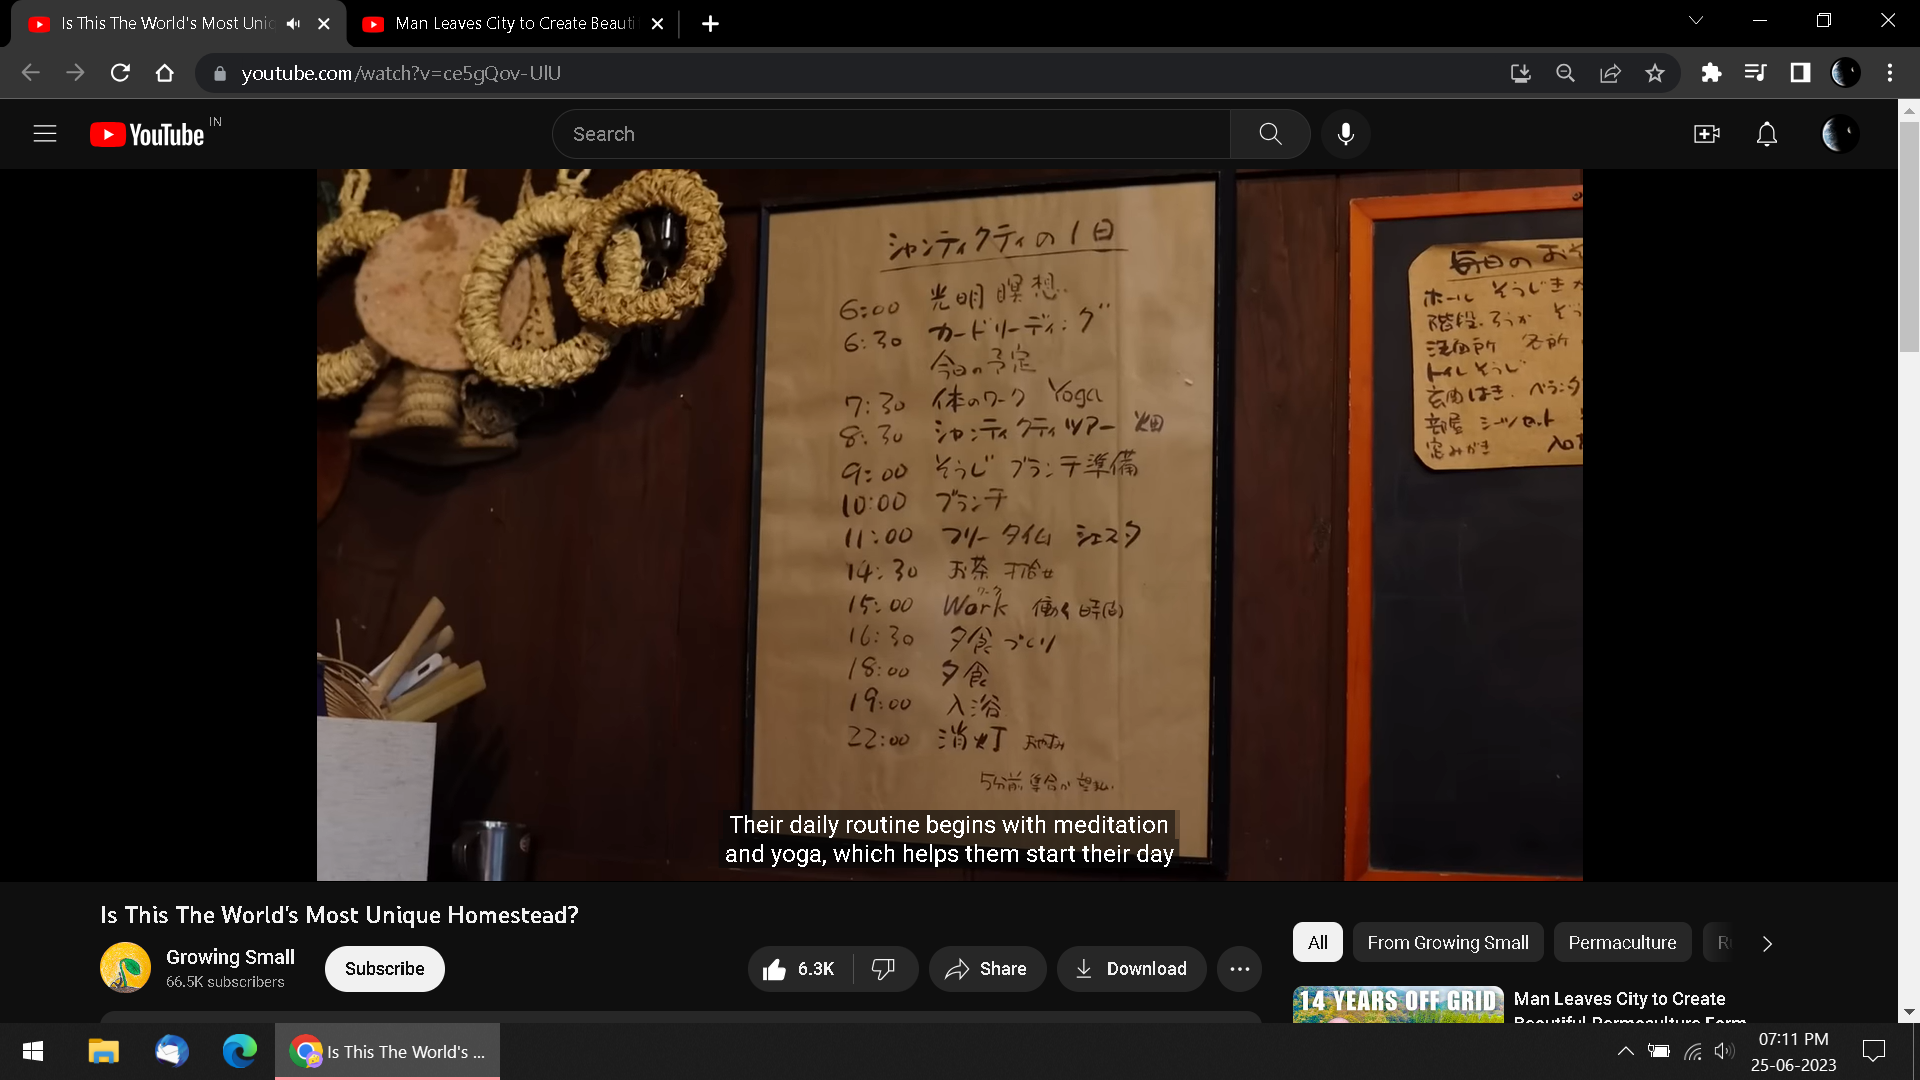 Is This The World's Most Uniq
Man Leaves City to Create Beauti
youtube.com/watch?v=ce5gQov-UlU
YouTube IN
Search
シャンティクティの1日
6:00 光明瞑想
6:30 カードリーディング
今日の予定
7:30 体のワーク Yoga
8:30 シャンティクティツアー 畑
9:00 そうじ ブランチ準備
10:00 ブランチ
11:00 フリータイム シエスタ
14:30 お茶 打合せ
15:00 Work ワーク 働く時間
16:30 夕食づくり
18:00 夕食
19:00 入浴
22:00 消灯 おやすみ
5分前集合が望
毎日のおそ
ホール そうじき
階段 ろうか
洗面所 各所
トイレそうじ
玄関はき ベランダ
部屋 シーツセット
窓みがき
Their daily routine begins with meditation
and yoga, which helps them start their day
Is This The World's Most Unique Homestead?
Growing Small
66.5K subscribers
Subscribe
6.3K
Share
Download
All
From Growing Small
Permaculture
14 YEARS OFF GRID
Man Leaves City to Create
Beautiful Permaculture Farm
Is This The World's ...
07:11 PM
25-06-2023